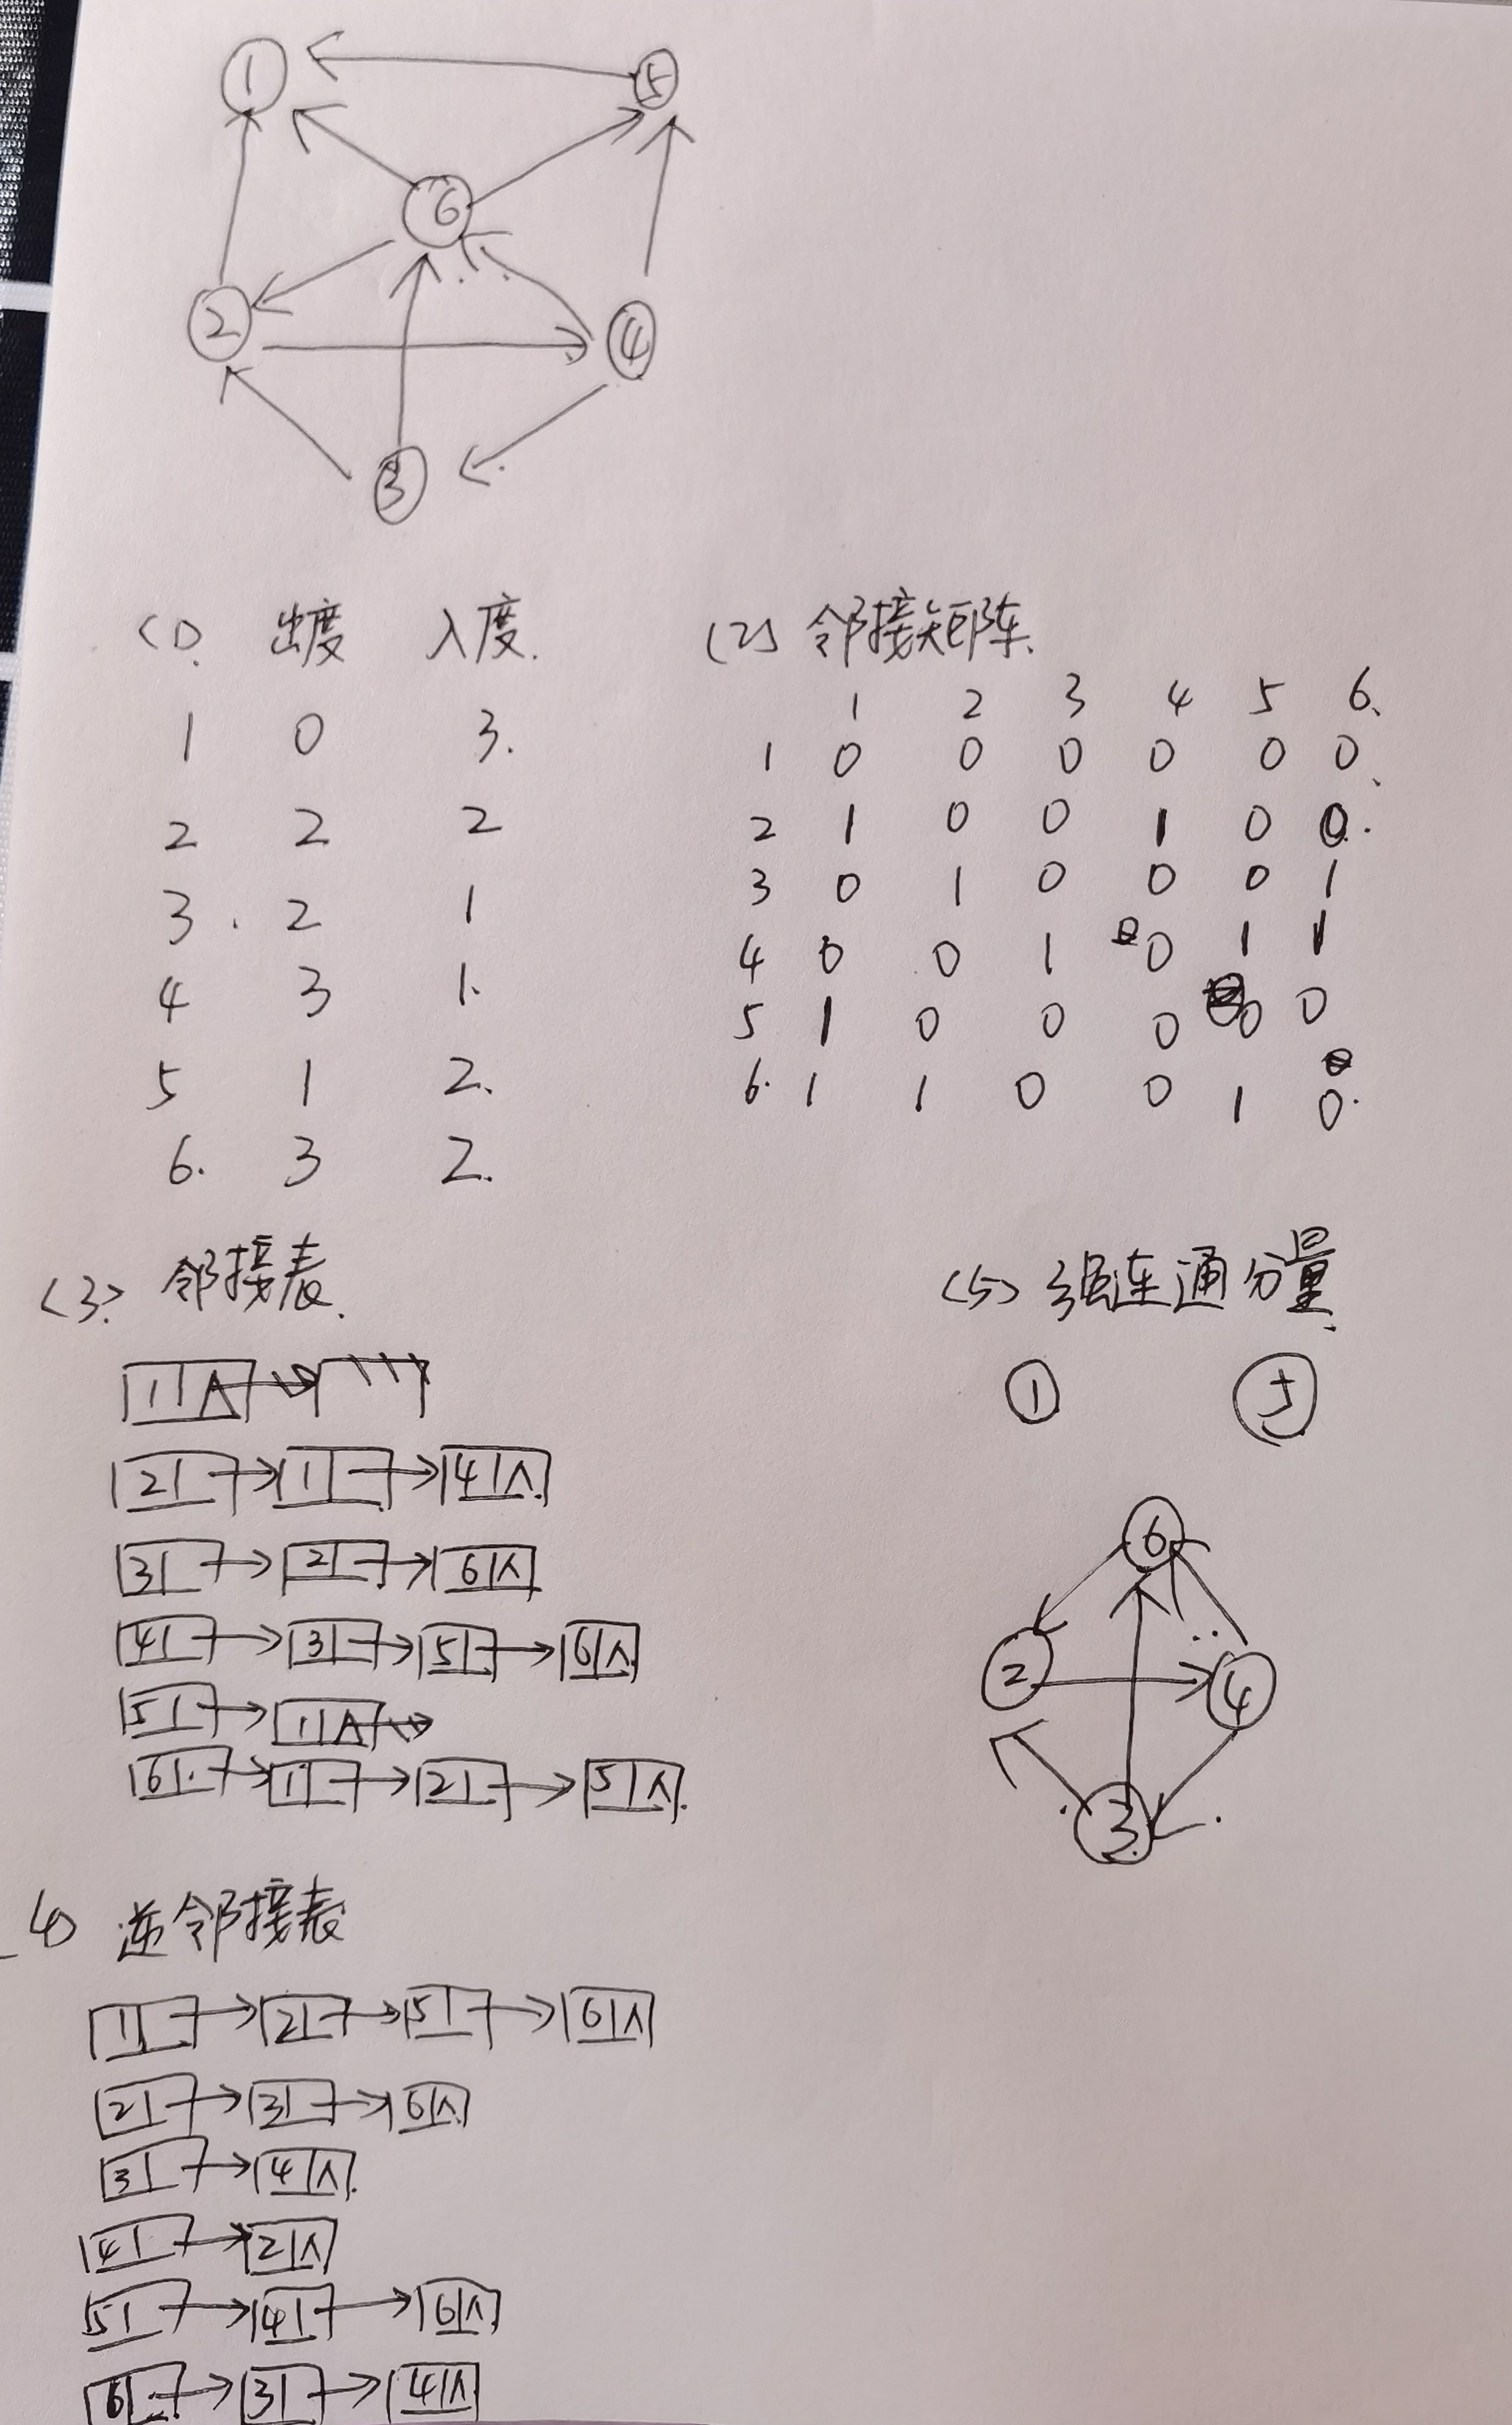 1 5
6
2 4
3
(1) 出度 入度.
1 0 3.
2 2 2
3. 2 1
4 3 1.
5 1 2.
6. 3 2.
(2) 邻接矩阵.
1 2 3 4 5 6、
1 0 0 0 0 0 0、
2 1 0 0 1 0 0.
3 0 1 0 0 0 1
4 0 0 1 0 1 1
5 1 0 0 0 0 0
6. 1 1 0 0 1 0.
(3) 邻接表.
1 ∧
2 → 1 → 4 ∧
3 → 2 → 6 ∧
4 → 3 → 5 → 6 ∧
5 → 1 ∧
6 → 1 → 2 → 5 ∧
(5) 强连通分量.
1 5
6
2 4
3
4) 逆邻接表
1 → 2 → 5 → 6 ∧
2 → 3 → 6 ∧
3 → 4 ∧
4 → 2 ∧
5 → 4 → 6 ∧
6 → 3 → 4 ∧